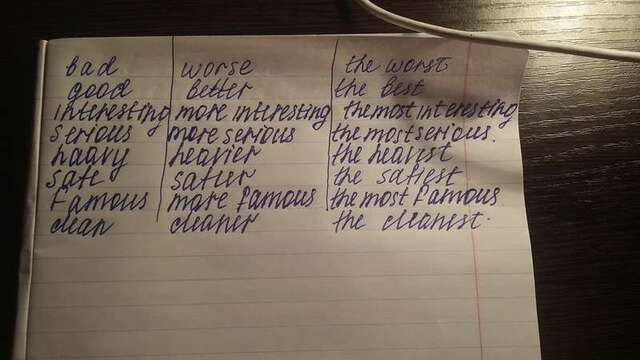 bad worse the worst
good better the best
interesting more interesting the most interesting
serious more serious the most serious.
haavy heavier the heavest
safe safier the safiest
famous more famous the most famous
clean cleaner the cleanest.